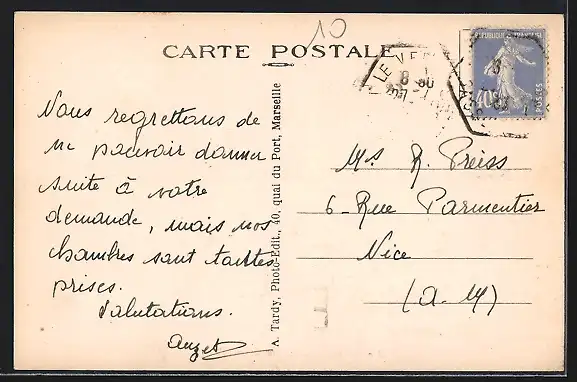 10
CARTE POSTALE
RÉPUBLIQUE FRANÇAISE
40c
POSTES
LE VE
8 30
Nous regrettons de
ne pouvoir donner
suite à votre
demande, mais nos
chambres sont toutes
prises.
Salutations.
Auzet
A. Tardy, Photo-Edit., 40, quai du Port, Marseille
Mrs R. Preiss
6 - Rue Parmentier
Nice
(A. M)